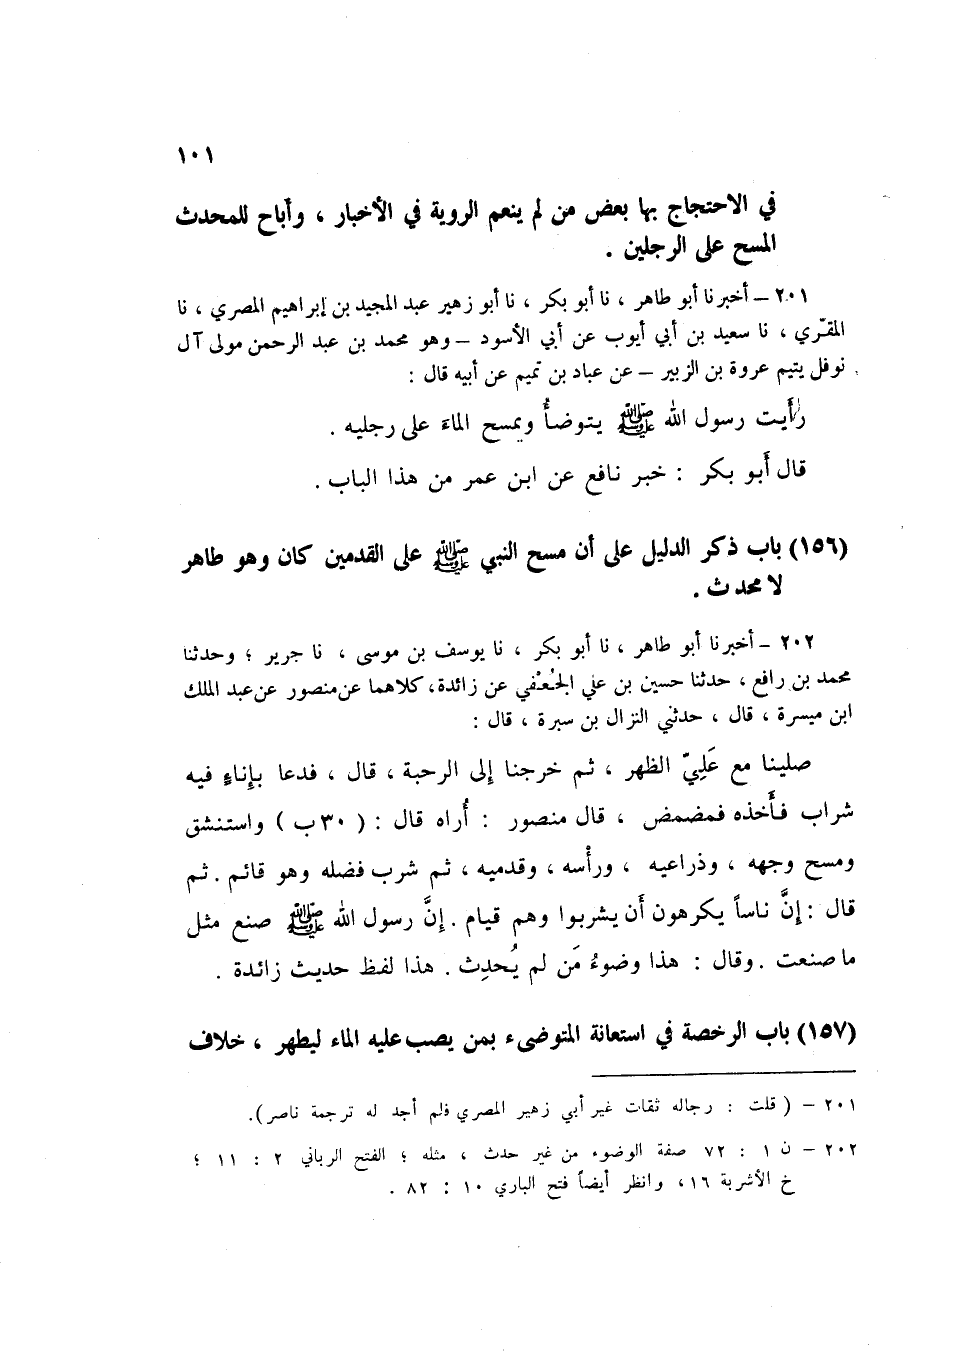 ١٠١
في الاحتجاج بها بعض من لم ينعم الروية في الأخبار ، وأباح للمحدث
المسح على الرجلين .
٢٠١ – أخبرنا أبو طاهر ، نا أبو بكر ، نا أبو زهير عبد المجيد بن إبراهيم المصري ، نا
المقرّي ، نا سعيد بن أبي أيوب عن أبي الأسود – وهو محمد بن عبد الرحمن مولى آل
نوفل يتيم عروة بن الزبير – عن عباد بن تميم عن أبيه قال :
رأيت رسول الله ﷺ يتوضأُ ويمسح الماءَ على رجليه .
قال أَبو بكر : خبر نافع عن ابن عمر من هذا الباب .
(١٥٦) باب ذكر الدليل على أن مسح النبي ﷺ على القدمين كان وهو طاهر
لا محدث .
٢٠٢ – أخبرنا أبو طاهر ، نا أبو بكر ، نا يوسف بن موسى ، نا جرير ؛ وحدثنا
محمد بن رافع ، حدثنا حسين بن علي الجُعْفي عن زائدة، كلاهما عن منصور عن عبد الملك
ابن ميسرة ، قال ، حدثني النزال بن سبرة ، قال :
صلينا مع عَلِيّ الظهر ، ثم خرجنا إلى الرحبة ، قال ، فدعا بإِناءٍ فيه
شراب فأَخذه فمضمض ، قال منصور : أُراه قال : ( ٣٠ ب ) واستنشق
ومسح وجهه ، وذراعيه ، ورأْسه ، وقدميه ، ثم شرب فضله وهو قائم . ثم
قال : إِنَّ ناساً يكرهون أَن يشربوا وهم قيام . إِنَّ رسول الله ﷺ صنع مثل
ما صنعت . وقال : هذا وضوءُ مَن لم يُحدِث . هذا لفظ حديث زائدة .
(١٥٧) باب الرخصة في استعانة المتوضىء بمن يصب عليه الماء ليطهر ، خلاف
٢٠١ – ( قلت : رجاله ثقات غير أبي زهير المصري فلم أجد له ترجمة ناصر).
٢٠٢ – ن ١ : ٧٢ صفة الوضوء من غير حدث ، مثله ؛ الفتح الرباني ٢ : ١١ ؛
خ الأشربة ١٦، وانظر أيضاً فتح الباري ١٠ : ٨٢ .